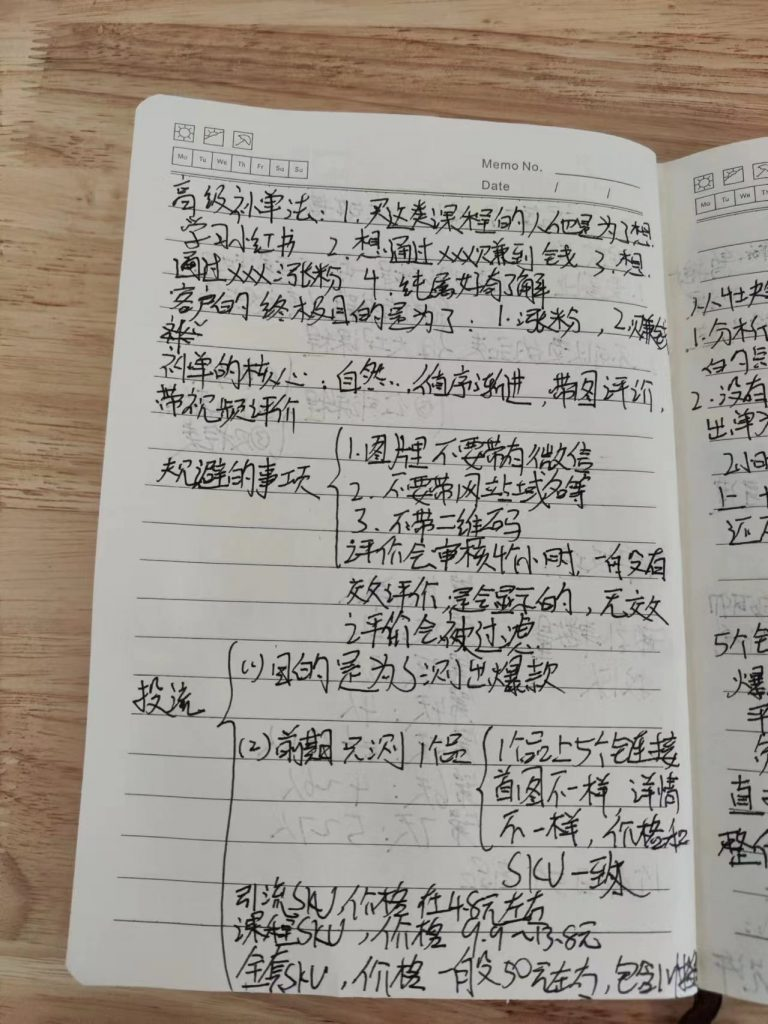 Mo Tu We Th Fr Sa Su
Memo No.
Date / /
高级补单法：1. 买这类课程的人他是为了想
学习小红书 2. 想通过xxx赚到钱 3. 想
通过xxx涨粉 4. 纯属好奇了解
客户的终极目的是为了：1. 涨粉，2. 赚钱
补单的核心：自然，循序渐进，带图评价，
带视频评价
规避的事项
1. 图片里不要带有微信
2. 不要带网站域名等
3. 不带二维码
评价会审核4个小时，一般没有
效评价，是会显示的，无效
评价会被过滤
投流
(1) 目的是为了测出爆款
(2) 前期只测1个品
1个品上5个链接
首图不一样 详情
不一样，价格和
SKU一致
引流SKU，价格在4.8元左右
课程SKU，价格9.9～13.8元
全套SKU，价格一般50元左右，包含
Mo Tu We Th
1. 分析
2. 没有
出单
2小时
5个
爆
平
直
整个